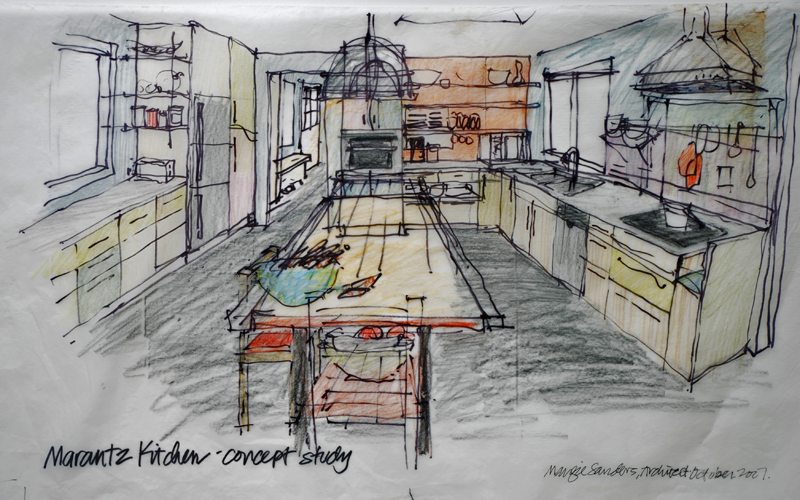 Marantz Kitchen - concept study
Margie Sanders, Architect October 2007.